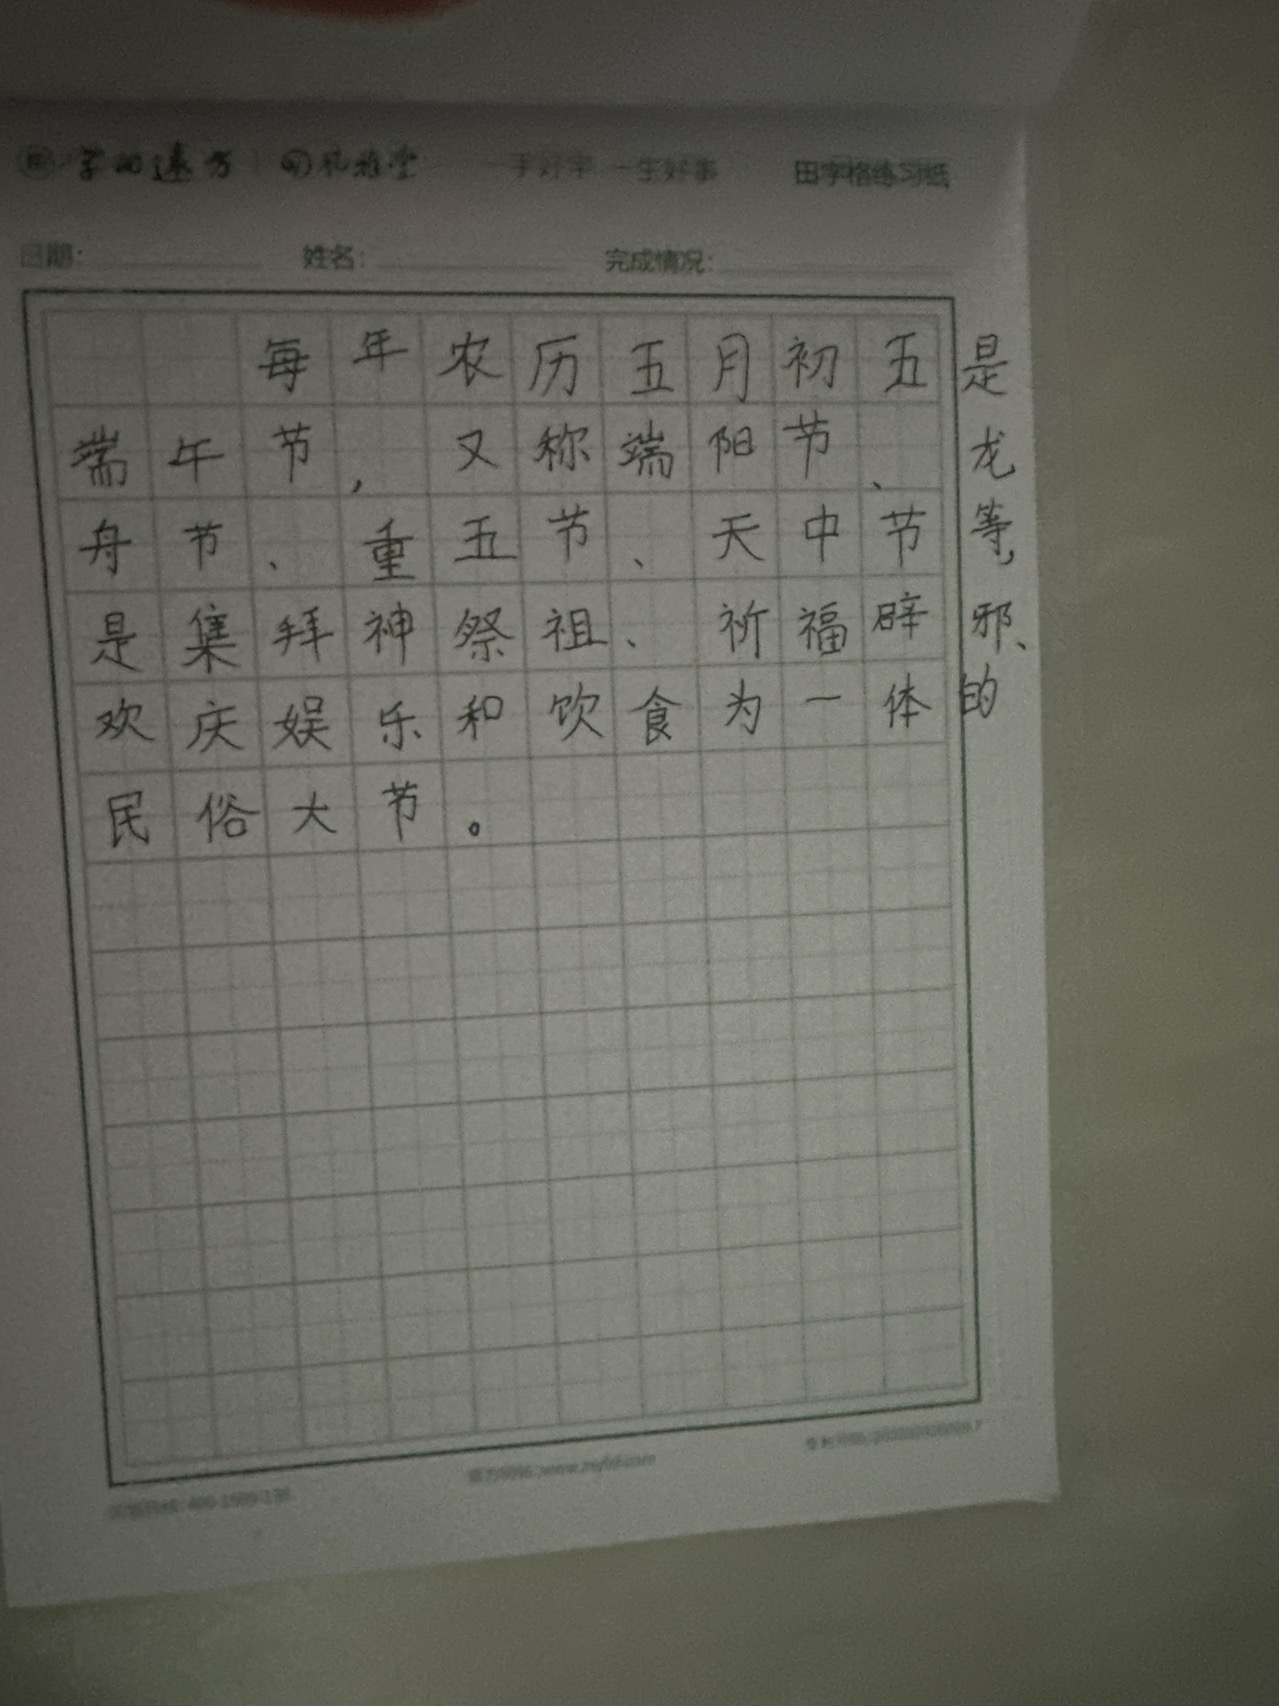 一手好字 一生好事 田字格练习纸
日期： 姓名： 完成情况：
每年农历五月初五是
端午节，又称端阳节、龙
舟节、重五节、天中节等，
是集拜神祭祖、祈福辟邪、
欢庆娱乐和饮食为一体的
民俗大节。